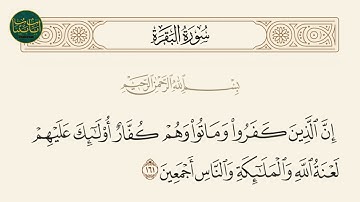 سُورَةُ البَقَرَةِ
بِسْمِ اللَّهِ الرَّحْمَٰنِ الرَّحِيمِ
إِنَّ الَّذِينَ كَفَرُوا۟ وَمَاتُوا۟ وَهُمْ كُفَّارٌ أُو۟لَٰٓئِكَ عَلَيْهِمْ
لَعْنَةُ اللَّهِ وَالْمَلَٰٓئِكَةِ وَالنَّاسِ أَجْمَعِينَ ١٦١